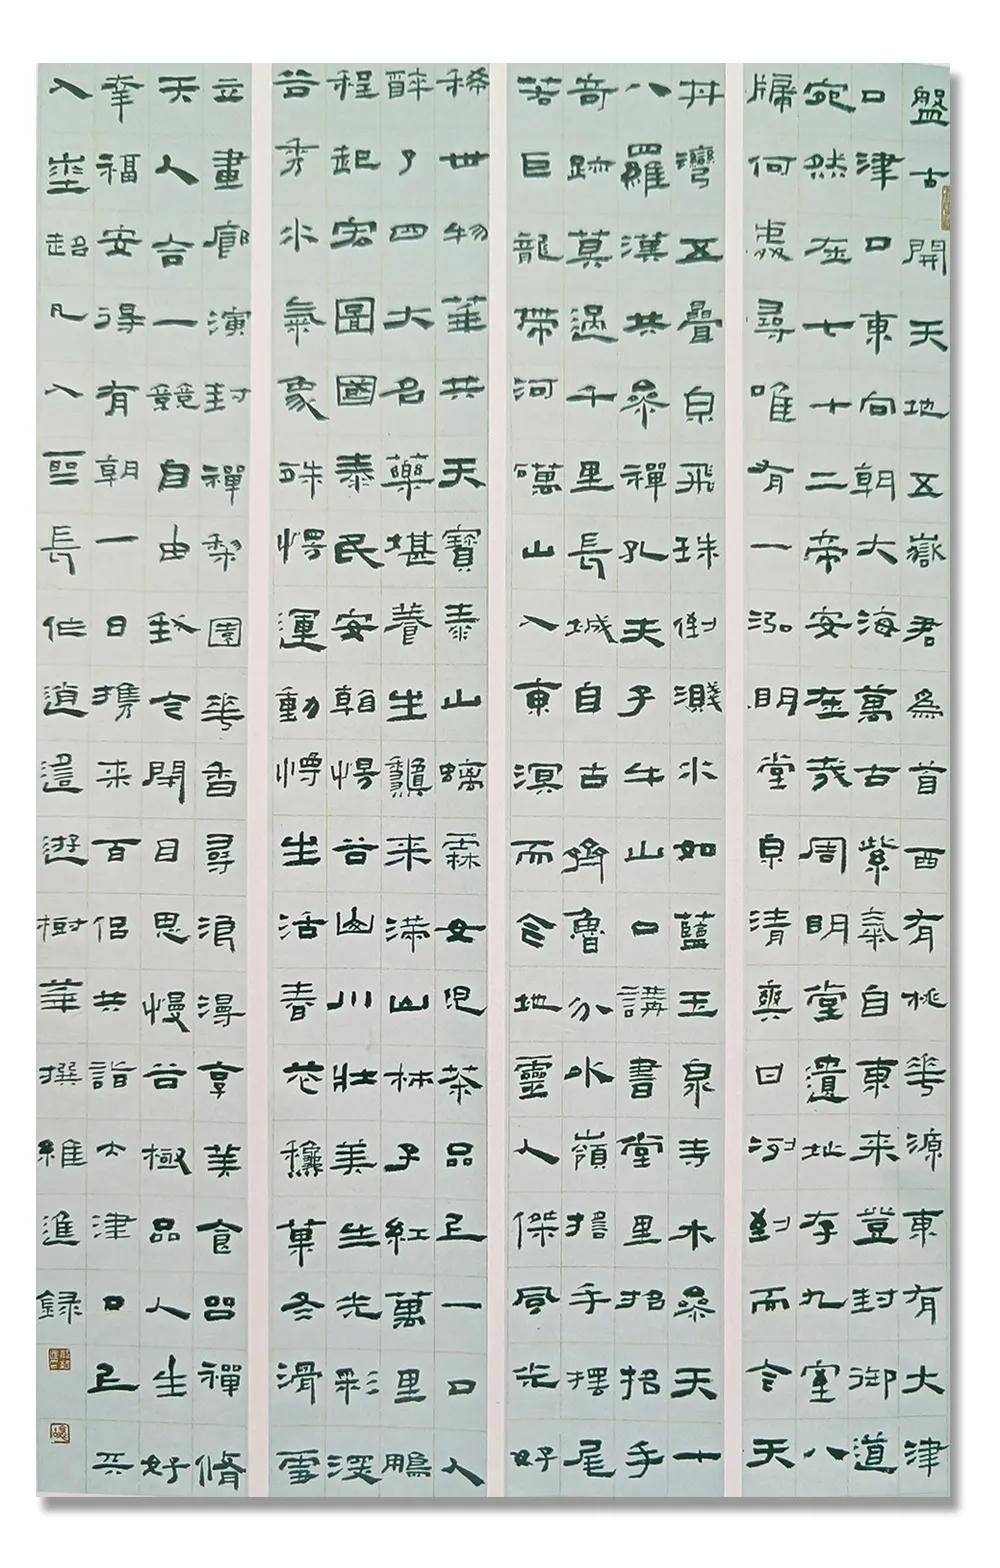 盤古開天地五嶽君為首酉有桃華源東有大津
口津口東向朝大海萬古紫氣自東来登封御道
宛然在七十二帝安在哉周明堂遺址存九室八
牖何處尋唯有一泓明堂泉清與曰河封而今天
井灣五疊泉飛珠倒濺水如藍玉泉寺木參天十
八羅漢共參禪孔夫子牛山口講書堂里招招手
奇跡莫過千里長城自古齊魯分水嶺搖手擺尾
若巨龍帶河礪山入東溟而今地靈人傑風光好
稀世物華共天寶泰山螭霖女児茶品正一口人
醉了四大名藥堪養生来滿山林子紅萬里鵬
程起宏圖國泰民安谷山川壯美生光彩深
谷秀水氣象殊運動生活春花穠菓冬滑雪
立畫廊演封禪梨園華香尋浪漫享美食品禪脩
天人合一競自由今開目思慢谷極品人生好
幸福安得有朝一日攜来百侶共詣大津口正
入塵超凡入聖長作逍遙遊樹華撰維進録